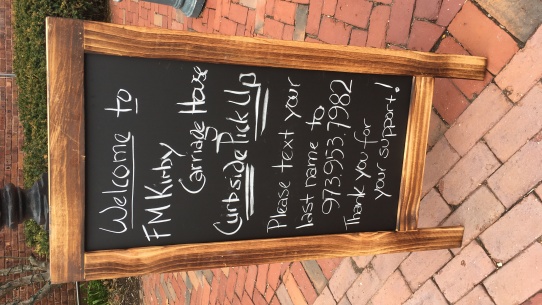 Welcome to
FM Kirby
Carriage House
Curbside Pick Up
Please text your
last name to
973.953.7982
Thank you for
your support!